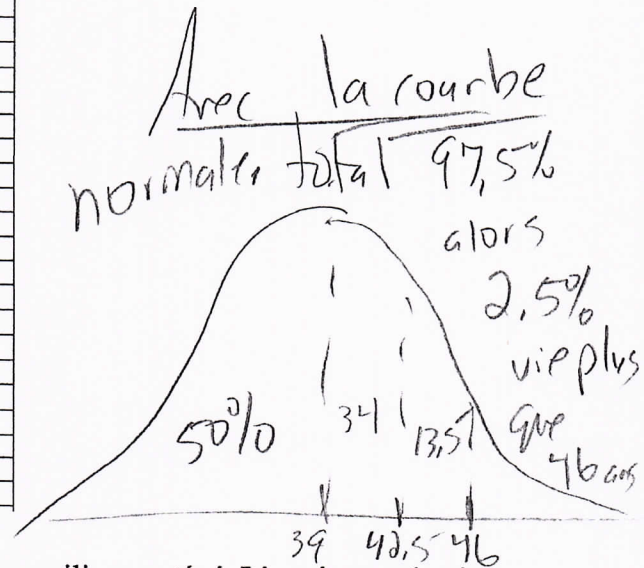 Avec la courbe
normale, total 97,5%
alors
2,5%
vie plus
que
46 ans
50% 34 13,5
39 42,5 46